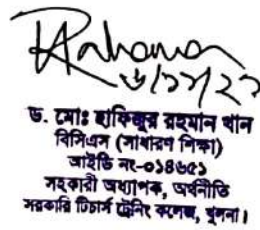 Rahman
৬/১১/২২
ড. মোঃ হাফিজুর রহমান খান
বিসিএস (সাধারণ শিক্ষা)
আইডি নং-০১৪৬৫১
সহকারী অধ্যাপক, অর্থনীতি
সরকারি টিচার্স ট্রেনিং কলেজ, খুলনা।